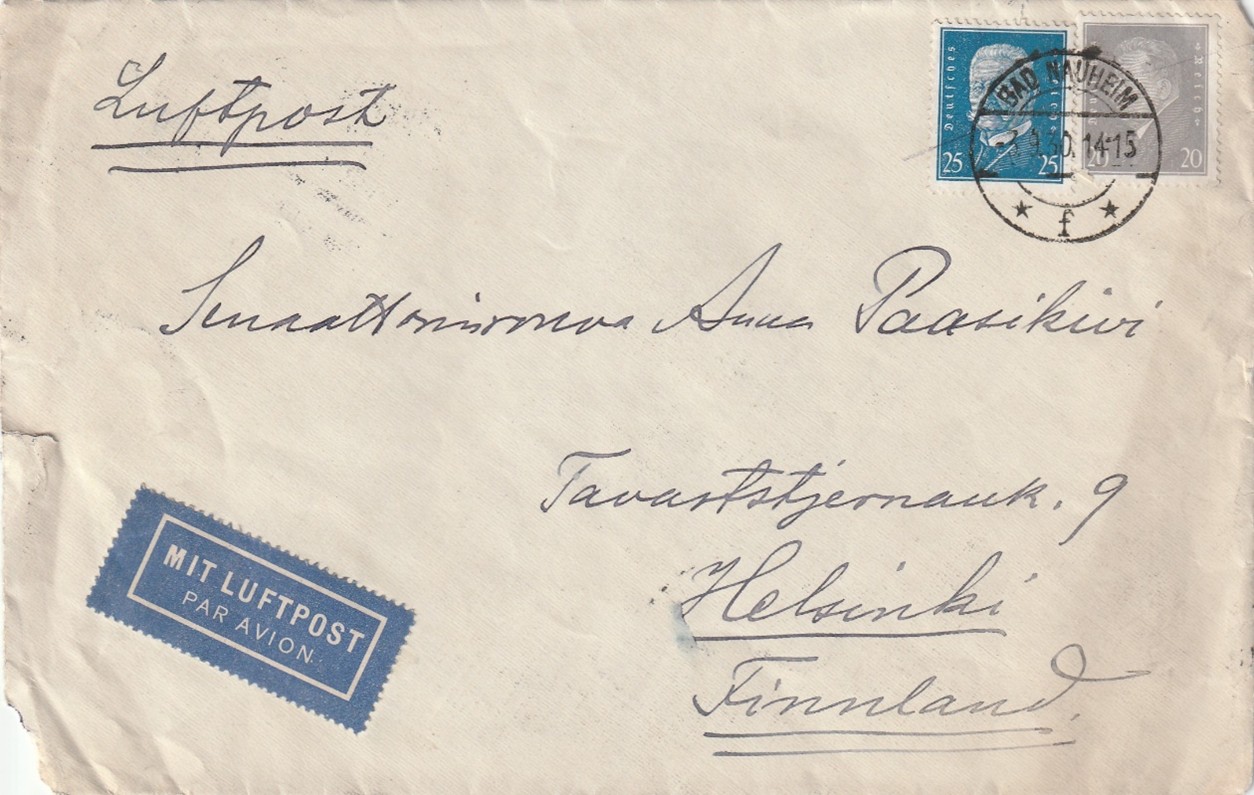 Luftpost
Deutsches Reich
25 25
Deutsches Reich
20 20
BAD NAUHEIM
30. 14-15
f
Senaattorinrouva Anna Paasikivi
Tavaststjernank. 9
Helsinki
Finnland.
MIT LUFTPOST
PAR AVION